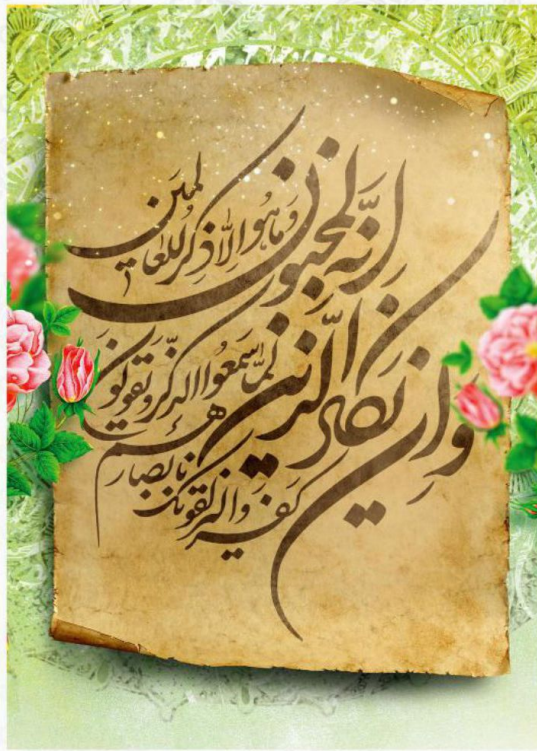 وَإِن يَكَادُ الَّذِينَ
كَفَرُوا لَيُزْلِقُونَكَ بِأَبْصَارِهِمْ
لَمَّا سَمِعُوا الذِّكْرَ وَيَقُولُونَ
إِنَّهُ لَمَجْنُونٌ
وَمَا هُوَ إِلَّا ذِكْرٌ لِّلْعَالَمِينَ